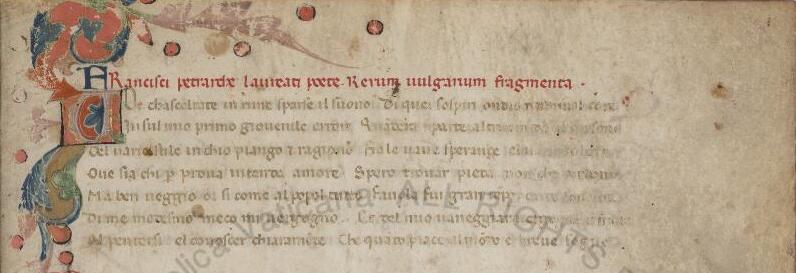 FRancisci petrarche laureati poete. Rerum uulgarium fragmenta.
Voi chascoltate in rime sparse il suono Di quei sospiri ondio nudriua il core
In sul mio primo giouenile errore Quandera in parte altruom da
Del uario stile in chio piango et ragiono Fra le uane sperançe
Oue sia chi p proua intenda amore Spero trouar pieta non che perdono
Ma ben ueggio or si come al popol tutto Fauola fui gran tēpo
Di me medesmo meco mi uergogno Et del mio uaneggiar
El pentersi el conoscer chiaramēte Che quāto piace al mōdo e breue sogno
Vaticana ALL RIGHTS